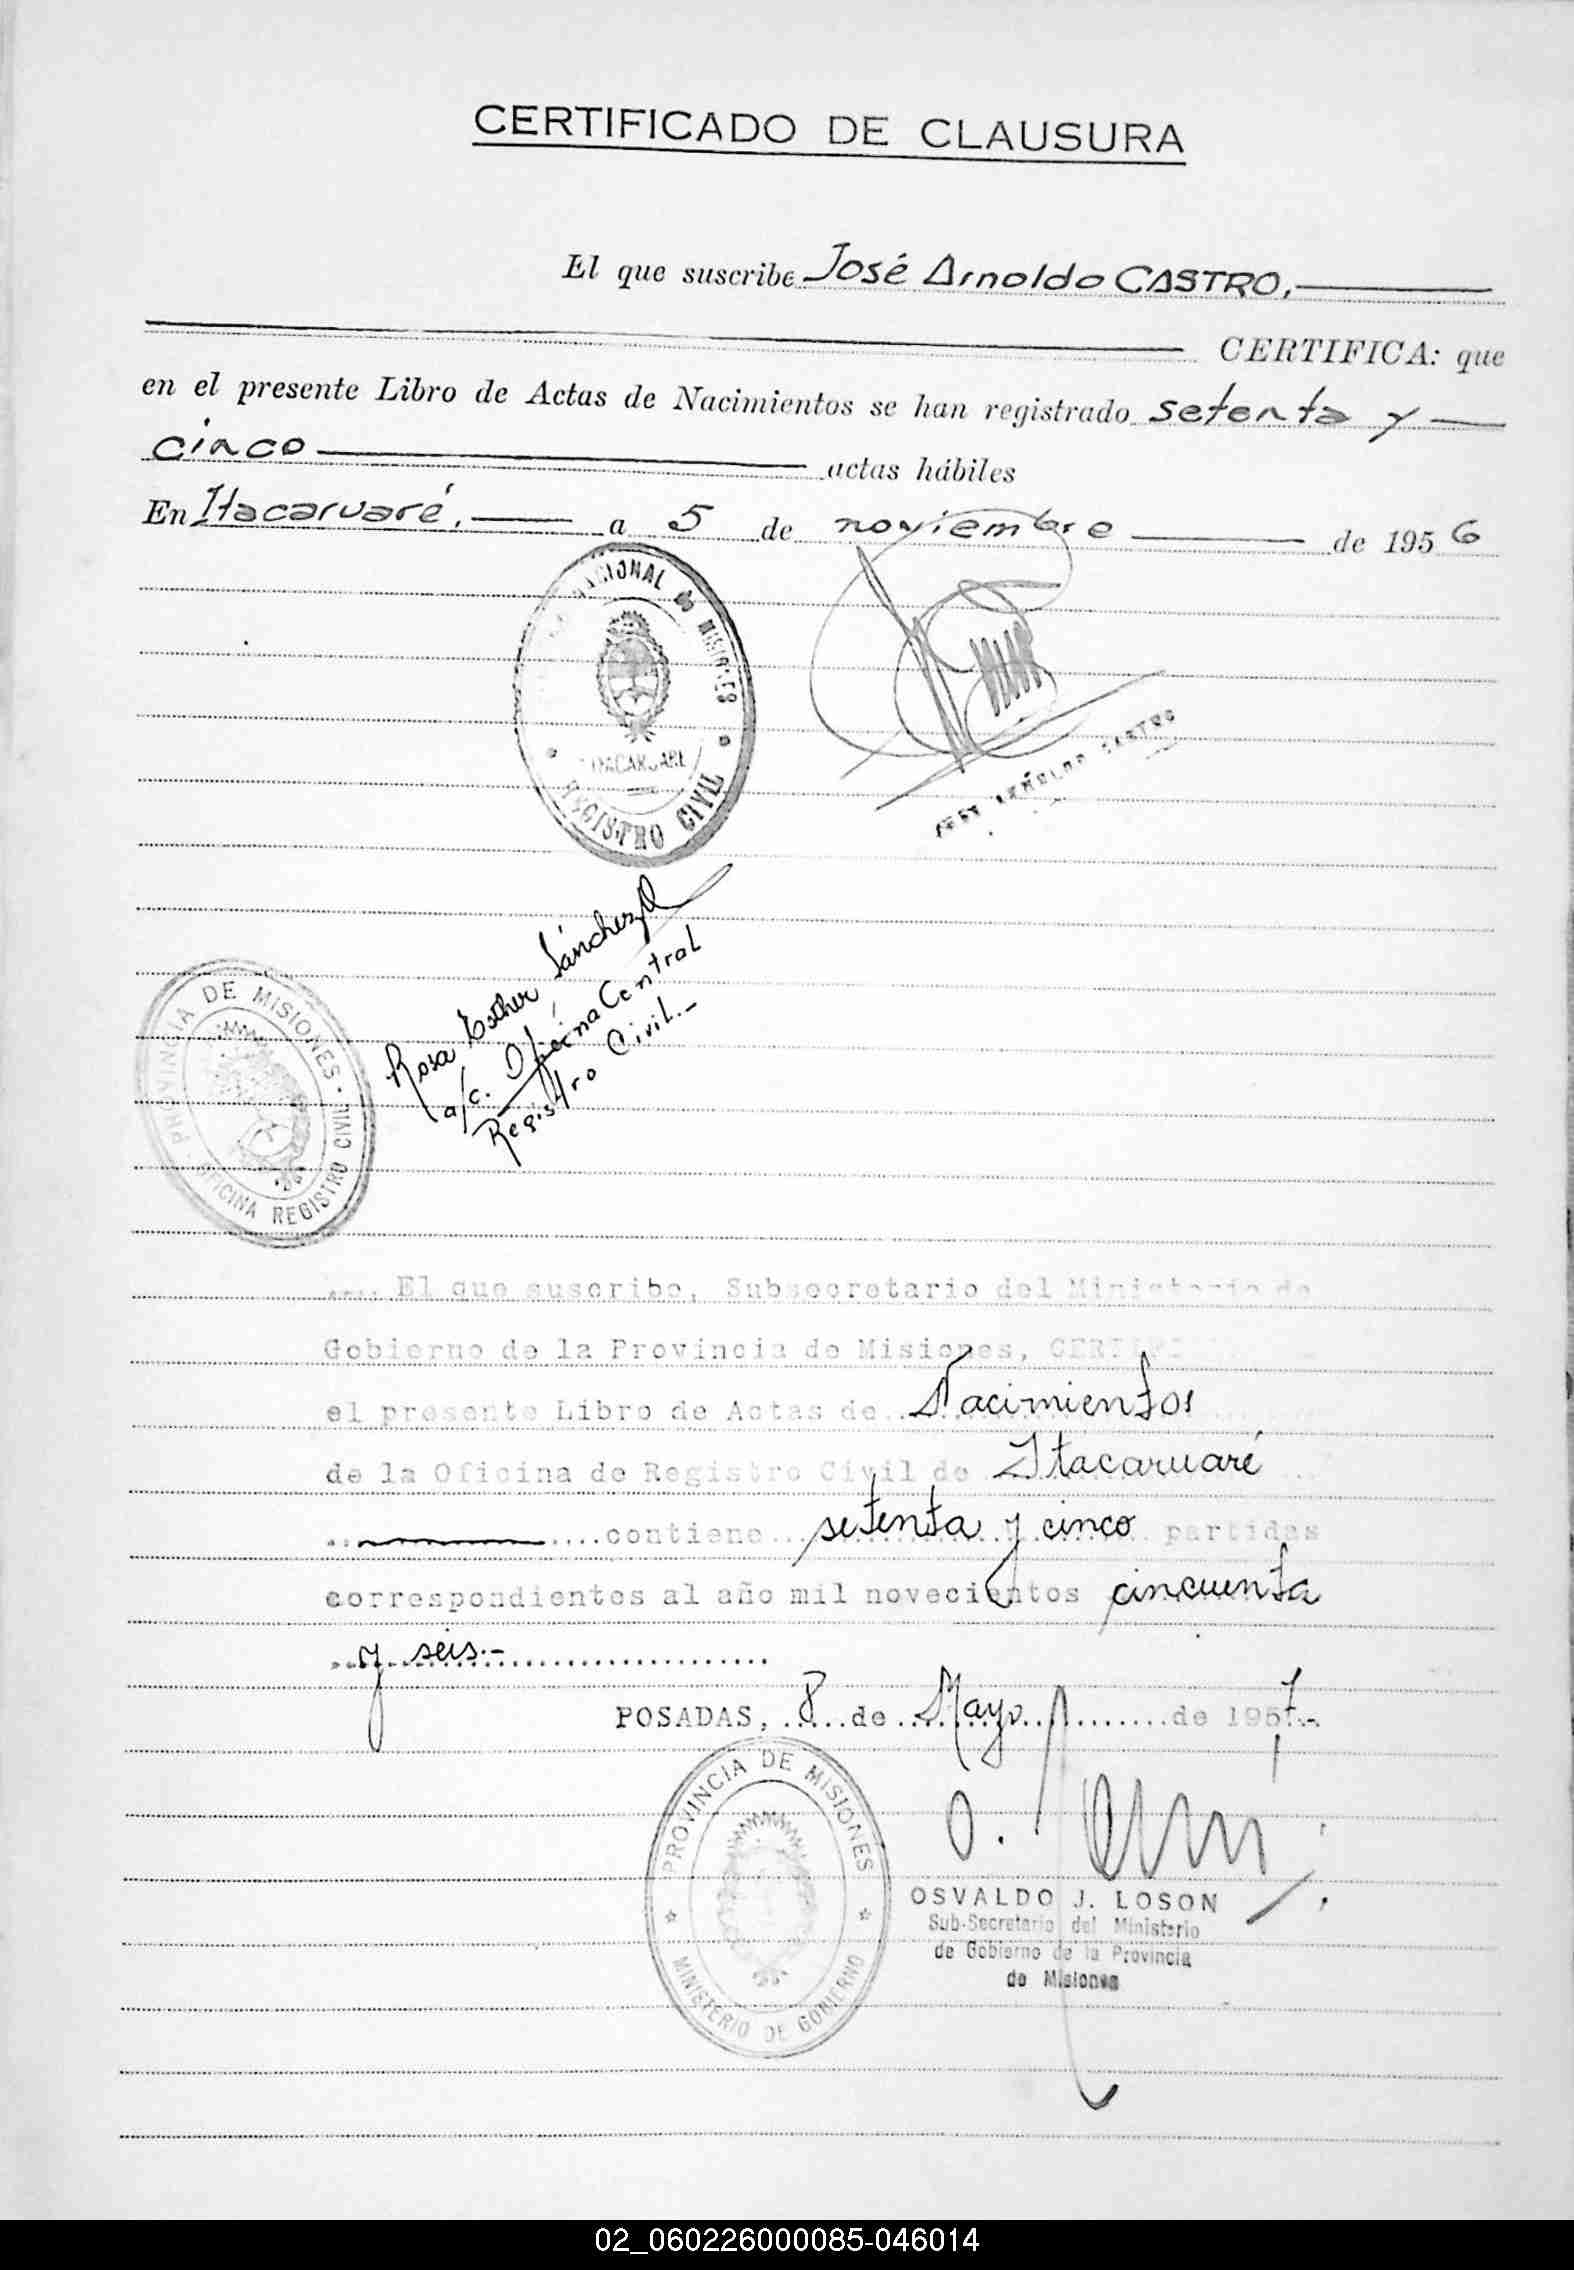 CERTIFICADO DE CLAUSURA
El que suscribe José Arnoldo CASTRO,
CERTIFICA: que
en el presente Libro de Actas de Nacimientos se han registrado setenta y
cinco actas hábiles
En Itacaruaré, a 5 de noviembre de 1956
NACIONAL DE MISIONES
ITACARUARE
REGISTRO CIVIL
JOSE ARNOLDO CASTRO
Rosa Esther Sánchez
a/c. Oficina Central
Registro Civil.-
PROVINCIA DE MISIONES
OFICINA REGISTRO CIVIL
.... El que suscribe, Subsecretario del Ministerio de
Gobierno de la Provincia de Misiones,
el presente Libro de Actas de Nacimientos
de la Oficina de Registro Civil de Itacaruaré
contiene setenta y cinco partidas
correspondientes al año mil novecientos cincuenta
y seis.-
POSADAS, 8 de Mayo de 1957.-
PROVINCIA DE MISIONES
MINISTERIO DE GOBIERNO
OSVALDO J. LOSON
Sub-Secretario del Ministerio
de Gobierno de la Provincia
de Misiones
02_060226000085-046014